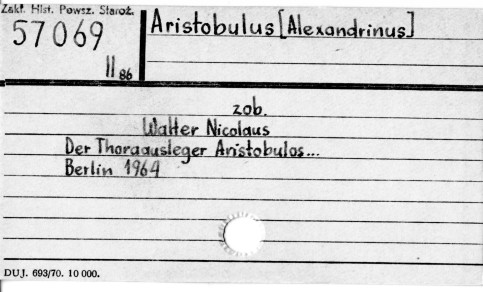 Zakł. Hist. Powsz. Staroż.
57069
II 86
Aristobulus [Alexandrinus]
zob.
Walter Nicolaus
Der Thoraausleger Aristobulos...
Berlin 1964
DUJ. 693/70. 10 000.